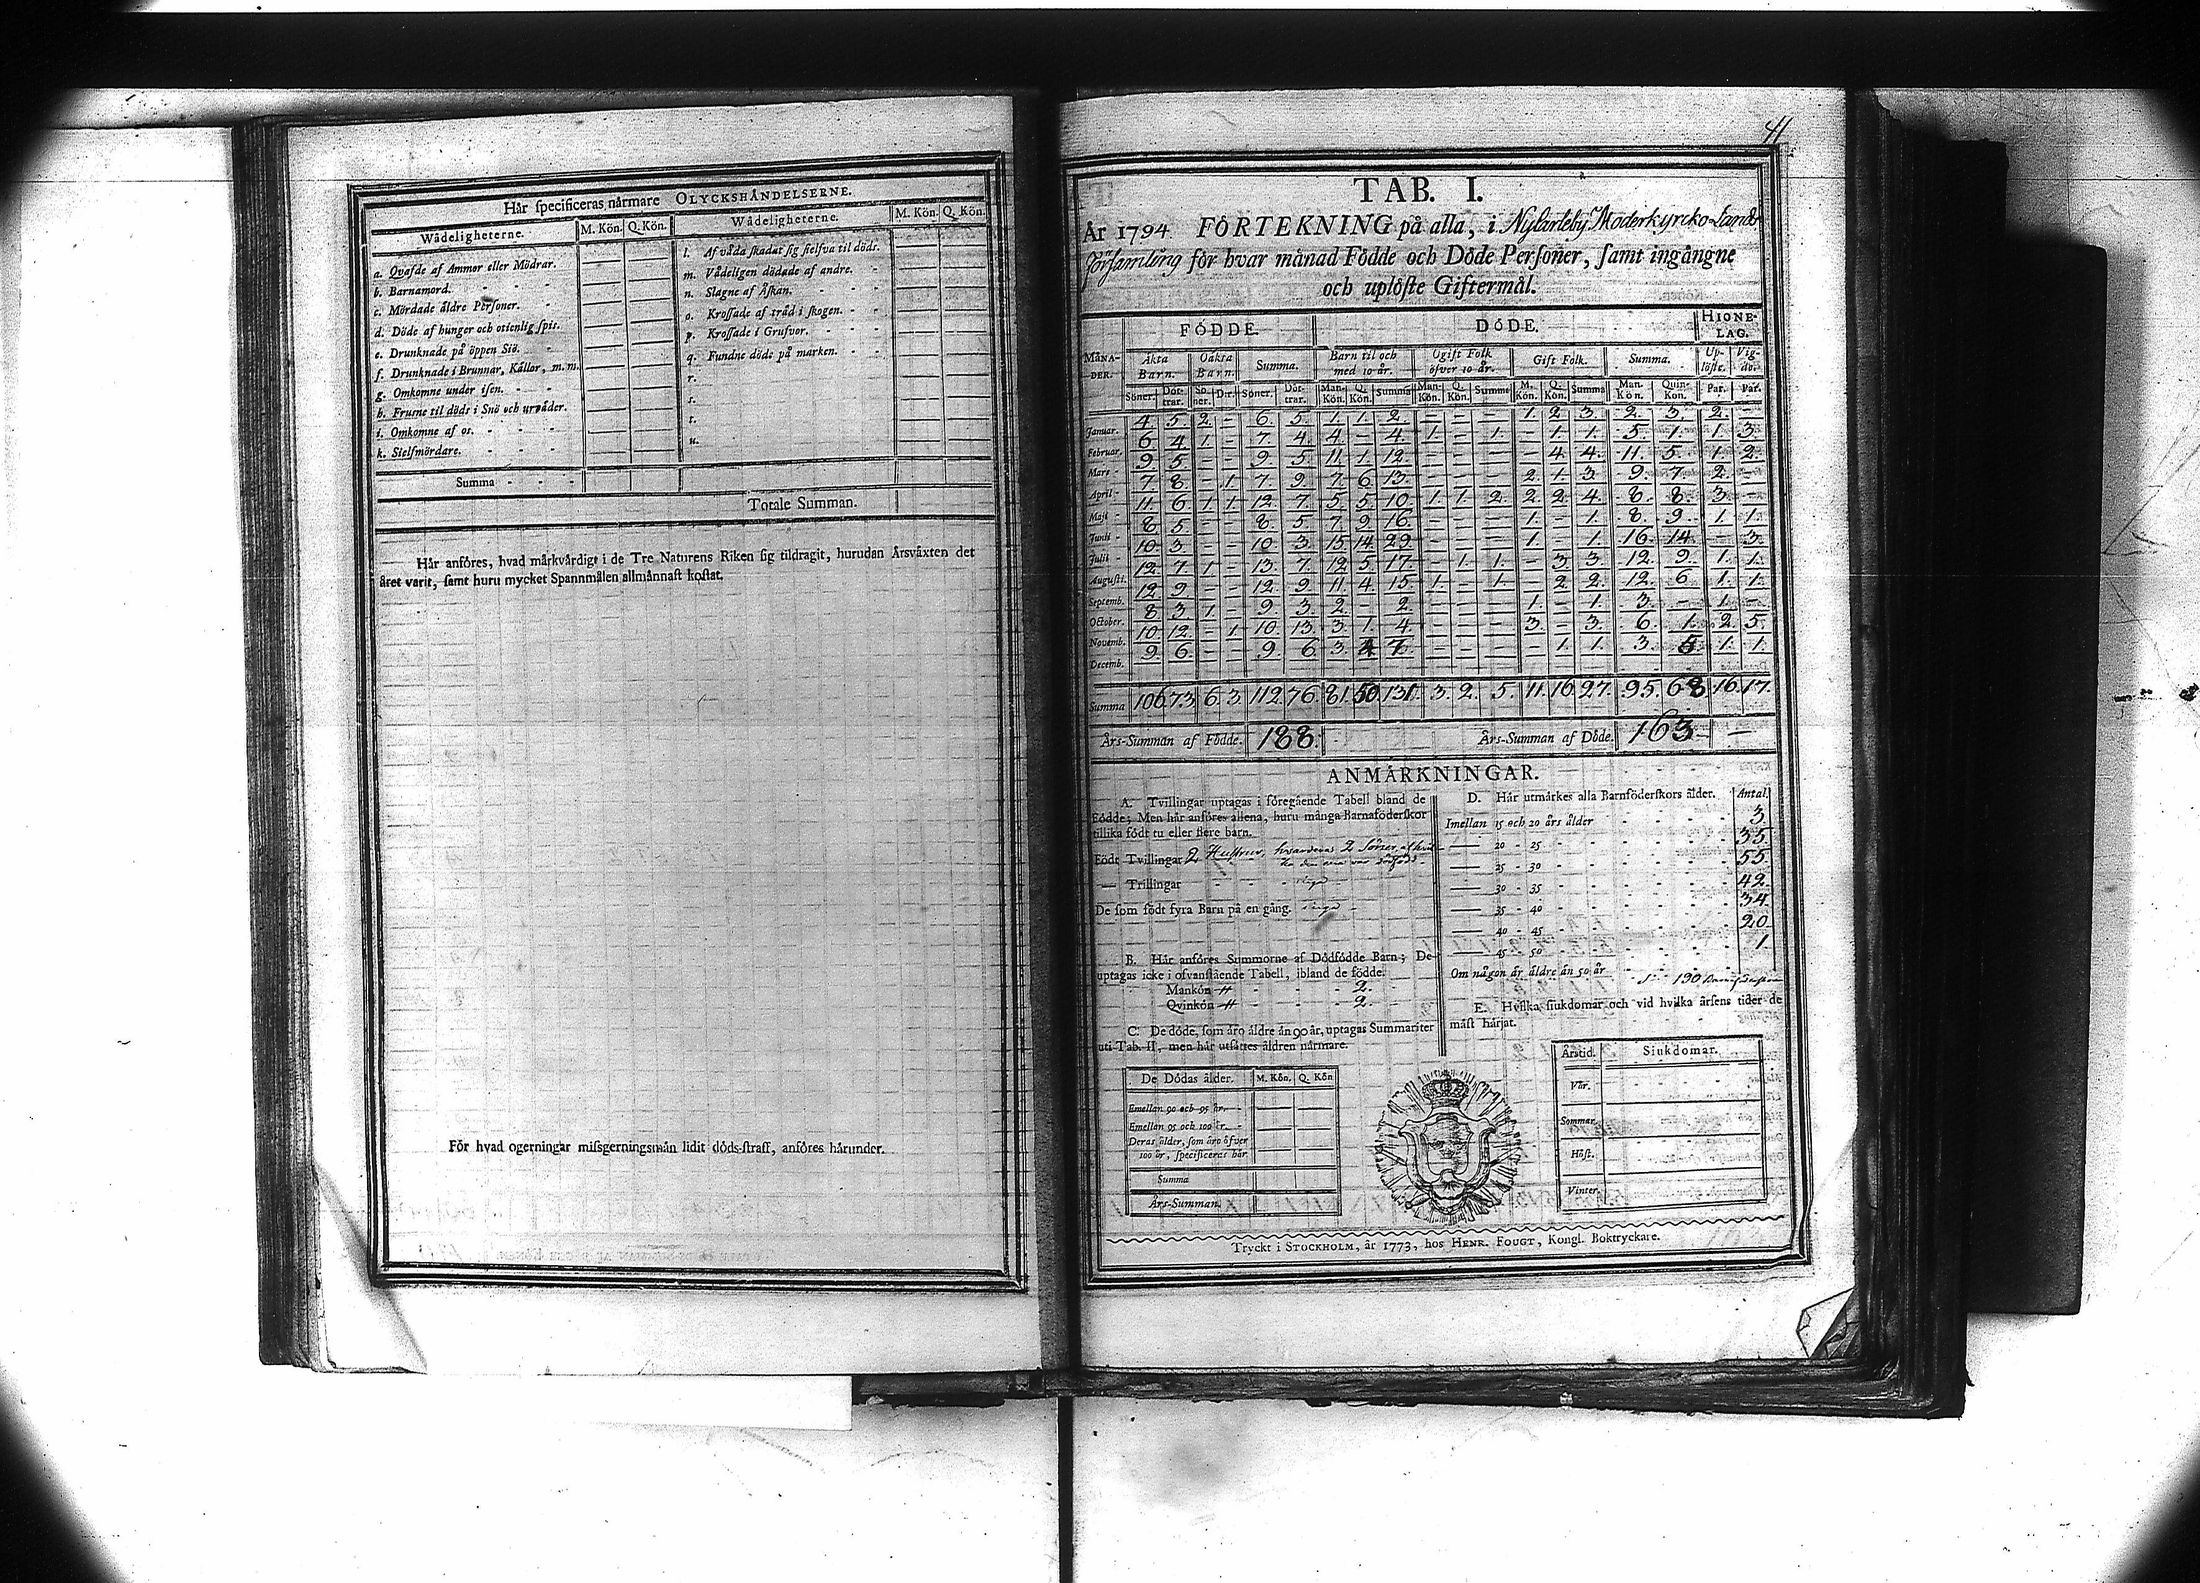 Hår specificeras nårmare OLYCKSHÅNDELSERNE.
Wådeligheterne. M. Kön. Q. Kön. Wådeligheterne. M. Kön. Q. Kön.
a. Qvafde af Ammor eller Mödrar. — — l. Af våda skadat sig sielfva til döds. — —
b. Barnamord. - - - — — m. Vådeligen dödade af andre. - — —
c. Mördade åldre Personer. - — — n. Slagne af Åskan. - - - — —
d. Döde af hunger och otienlig spis. — — o. Krossade af tråd i skogen. - - — —
e. Drunknade på öppen Siö. - — — p. Krossade i Grufvor. - - - — —
f. Drunknade i Brunnar, Kållor, m. m. — — q. Fundne döde på marken. - - — —
g. Omkomne under isen. - - — — r. — —
h. Frusne til döds i Snö och urvåder. — — s. — —
i. Omkomne af os. - - - — — t. — —
k. Sielfmördare. - - - — — u. — —
Summa - - -
Totale Summan.
Hår anföres, hvad mårkvårdigt i de Tre Naturens Riken sig tildragit, hurudan Årsvåxten det
året varit, samt huru mycket Spannmålen allmånnast kostat.
För hvad ogerningar missgerningsmån lidit döds-straff, anföres hårunder.
41
TAB. I.
År 1794 FÖRTEKNING på alla, i NyCarleby Moderkyrcko-Lands
församling för hvar månad Födde och Döde Personer, samt ingångne
och uplöste Giftermål.
FÖDDE. DÖDE. HIONE-
LAG.
MÅNA-
DER. Åkta
Barn. Oåkta
Barn. Summa. Barn til och
med 10 år. Ogift Folk
öfver 10 år. Gift Folk. Summa. Up-
löste. Vig-
de.
Söner. Döt-
trar. Sö-
ner. D:r. Söner. Döt-
trar. Man-
Kön. Q.
Kön. Summa Man-
Kön. Q.
Kön. Summa M.
Kön. Q.
Kön. Summa Man.
Kön. Quin-
Kon. Par. Par.
Januar. 4. 5. 2. - 6. 5. 1. 1. 2. - - - 1. 2. 3. 2. 3. 2. -
Februar. 6 4 1. - 7. 4. 4. - 4. 1. - 1. - 1. 1. 5. 1. 1. 3.
Mars - 9. 5. - - 9. 5 11. 1. 12. - - - - 4. 4. 11. 5. 1. 2.
April - 7. 8. - 1. 7. 9. 7. 6. 13. - - - 2. 1. 3. 9. 7. 2. -
Maji - 11. 6. 1. 1. 12. 7. 5. 5. 10. 1. 1. 2. 2. 2. 4. 8. 8. 3. -
Junii - 8. 5. - - 8. 5. 7. 9. 16. - - - 1. - 1. 8. 9. 1. 1.
Julii - 10. 3. - - 10. 3. 15. 14. 29. - - - 1. - 1. 16. 14. - 3.
Augusti. 12. 7. 1. - 13. 7. 12. 5. 17. - 1. 1. - 3. 3. 12. 9. 1. 1.
Septemb. 12. 9. - - 12. 9. 11. 4. 15. 1. - 1. - 2. 2. 12. 6. 1. 1.
October. 8. 3. 1. - 9. 3. 2. - 2. - - - 1. - 1. 3. - 1. -
Novemb. 10. 12. - 1. 10. 13. 3. 1. 4. - - - 3. - 3. 6. 1. 2. 5.
Decemb. 9. 6. - - 9. 6 3. 4 7. - - - - 1. 1. 3. 5. 1. 1.
Summa 106. 73. 6. 3. 112. 76. 81. 50. 131. 3. 2. 5. 11. 16. 27. 95. 68 16. 17.
Års-Summan af Födde. 188. Års-Summan af Döde. 163. —
ANMÅRKNINGAR.
A. Tvillingar uptagas i föregående Tabell bland de
Födde; Men hår anföres allena, huru många Barnaföderskor
tillika födt tu eller flere barn.
Födt Tvillingar 2 Hustrur, hvardera 2 Söner, af hvil-
ka den ena var dödfödd
— Trillingar - - - inga -
De som födt fyra Barn på en gång. inga -
B. Hår anföres Summorne af Dödfödde Barn; De
uptagas icke i ofvanstående Tabell, ibland de födde.
Mankön - - - 2.
Qvinkön - - - 2.
C. De döde, som åro åldre ån 90 år, uptagas Summariter
uti Tab. II, men hår utsåttes åldren nårmare.
De Dödas ålder. M. Kön. Q. Kön
Emellan 90 och 95 år. — —
Emellan 95 och 100 år. — —
Deras ålder, som åro öfver
100 år, specificeras hår — —
Summa
Års-Summan.
D. Hår utmårkes alla Barnföderskors ålder. Antal.
Imellan 15 och 20 års ålder - - - 3.
— 20 - 25 - - - 35.
— 25 - 30 - - - 55.
— 30 - 35 - - - 42.
— 35 - 40 - - - 34.
— 40 - 45 - - - 20.
— 45 - 50 - - - 1.
Om någon år åldre ån 50 år - S:a 190
E. Hvilka siukdomar och vid hvilka årsens tider de
måst hårjat.
Årstid. Siukdomar.
Vår.
Sommar.
Höst.
Vinter.
Tryckt i STOCKHOLM, år 1773, hos HENR. FOUGT, Kongl. Boktryckare.